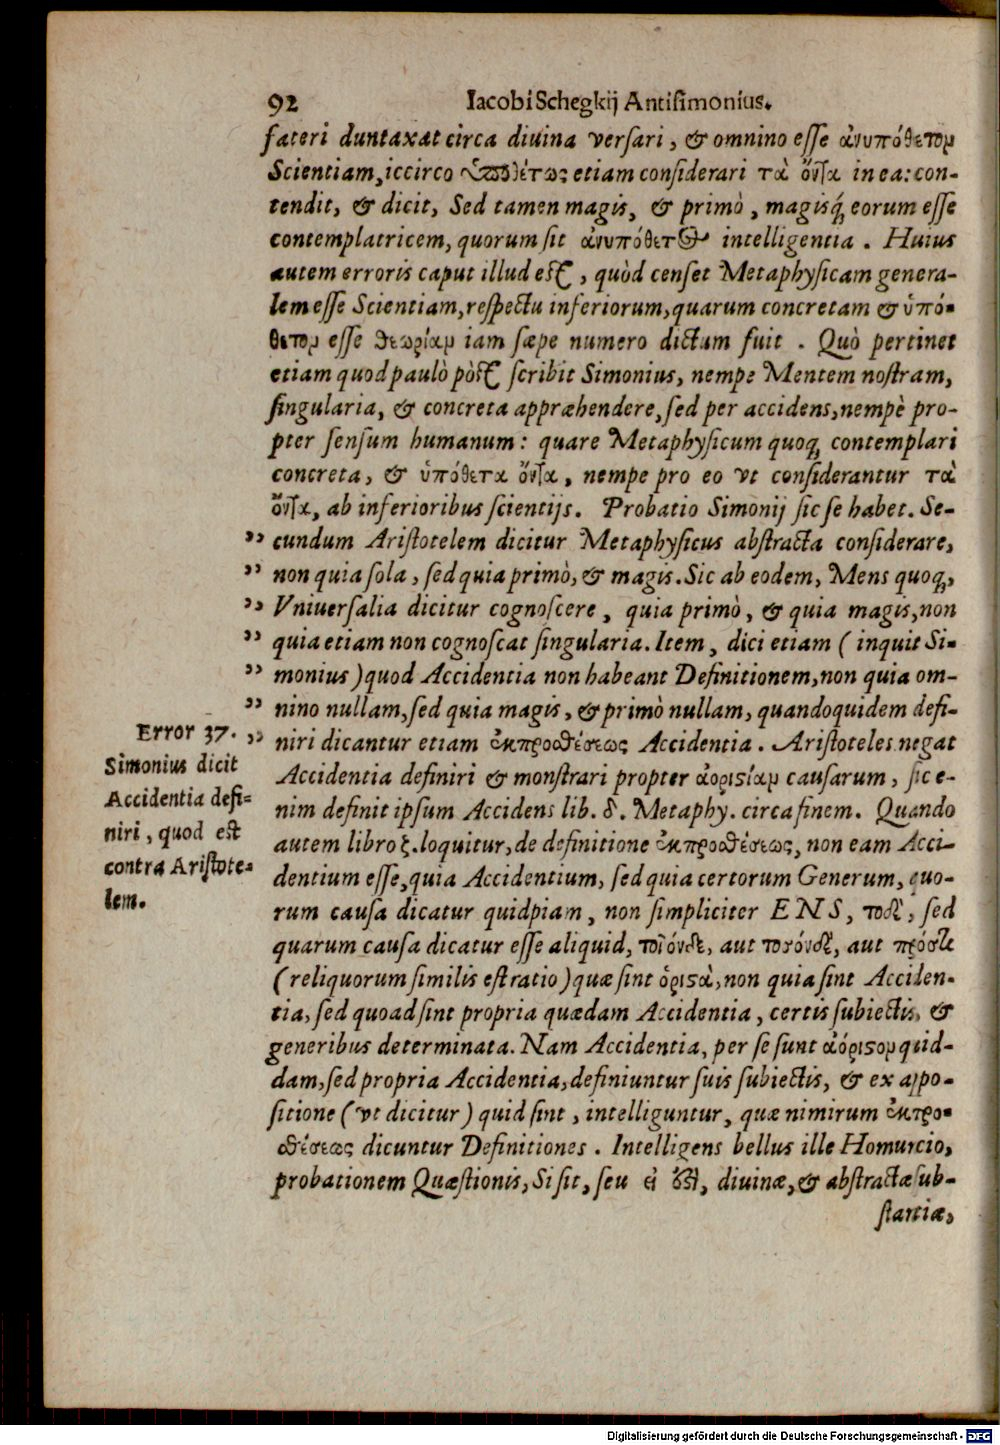 92
Iacobi Schegkij Antisimonius.
fateri duntaxat circa diuina versari, & omnino esse ἀνυπόθετον
Scientiam, iccirco ὑποθέτως etiam considerari τὰ ὄντα in ea: con-
tendit, & dicit, Sed tamen magis, & primò, magisq́; eorum esse
contemplatricem, quorum sit ἀνυπόθετος intelligentia. Huius
autem erroris caput illud est, quòd censet Metaphysicam genera-
lem esse Scientiam, respectu inferiorum, quarum concretam & ὑπό-
θετον esse θεωρίαν iam sæpe numero dictum fuit. Quò pertinet
etiam quod paulò pòst scribit Simonius, nempe Mentem nostram,
singularia, & concreta appræhendere, sed per accidens, nempè pro-
pter sensum humanum: quare Metaphysicum quoq; contemplari
concreta, & ὑπόθετα ὄντα, nempe pro eo vt considerantur τὰ
ὄντα, ab inferioribus scientijs. Probatio Simonij sic se habet. Se-
cundum Aristotelem dicitur Metaphysicus abstracta considerare,
non quia sola, sed quia primò, & magis. Sic ab eodem, Mens quoq;,
Vniuersalia dicitur cognoscere, quia primò, & quia magis, non
quia etiam non cognoscat singularia. Item, dici etiam (inquit Si-
monius) quod Accidentia non habeant Definitionem, non quia om-
nino nullam, sed quia magis, & primò nullam, quandoquidem defi-
niri dicantur etiam ἐκπροσθέσεως Accidentia. Aristoteles negat
Accidentia definiri & monstrari propter ἀοριστίαν causarum, sic e-
nim definit ipsum Accidens lib. δ. Metaphy. circa finem. Quando
autem libro ζ. loquitur, de definitione ἐκπροσθέσεως, non eam Acci-
dentium esse, quia Accidentium, sed quia certorum Generum, quo-
rum causa dicatur quidpiam, non simpliciter ENS, τοδὶ, sed
quarum causa dicatur esse aliquid, τοιόνδε, aut τοσόνδε, aut πρόστι
(reliquorum similis est ratio) quæ sint ὁριστὰ, non quia sint Acciden-
tia, sed quoad sint propria quædam Accidentia, certis subiectis, &
generibus determinata. Nam Accidentia, per se sunt ἀόριστον quid-
dam, sed propria Accidentia, definiuntur suis subiectis, & ex appo-
sitione (vt dicitur) quid sint, intelliguntur, quæ nimirum ἐκπρο-
σθέσεως dicuntur Definitiones. Intelligens bellus ille Homuncio,
probationem Quæstionis, Si sit, seu εἰ ἔστι, diuinæ, & abstractæ sub-
stantiæ,
Error 37.
Simonius dicit
Accidentia defi-
niri, quod est
contra Aristote-
lem.
Digitalisierung gefördert durch die Deutsche Forschungsgemeinschaft - DFG